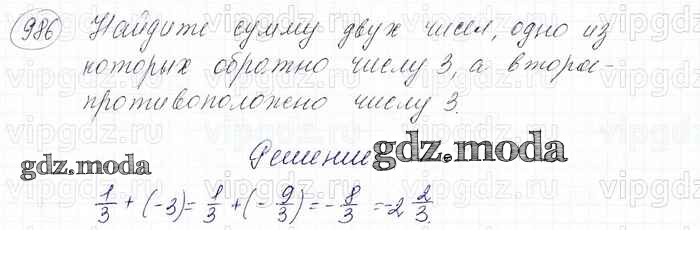 986 Найдите сумму двух чисел, одно из
которых обратно числу 3, а второе -
противоположено числу 3.
Решение
gdz.moda
gdz.moda
1/3 + (-3) = 1/3 + (-9/3) = -8/3 = -2 2/3.
vipgdz.ru